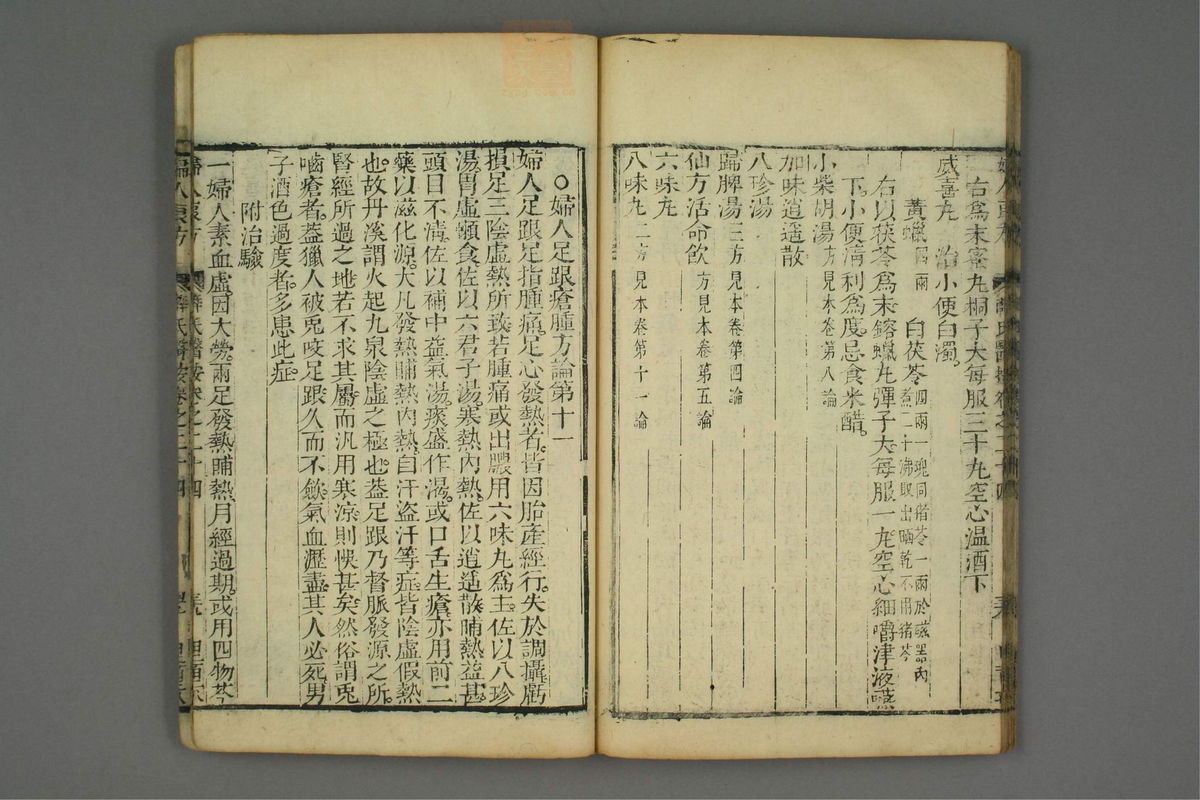 右爲末蜜丸桐子大每服三十丸空心温酒下
威喜丸 治小便白濁
黃蠟四兩 白茯苓四兩一塊同猪苓一兩於磁器內煮二十沸取出晒乾不用猪苓
右以茯苓爲末鎔蠟丸彈子大每服一丸空心細嚼津液嚥
下小便清利爲度忌食米醋
小柴胡湯方見本卷第八論
加味逍遥散
八珍湯
歸脾湯三方見本卷第四論
仙方活命飲方見本卷第五論
六味丸
八味丸二方見本卷第十一論
○婦人足跟瘡腫方論第十一
婦人足跟足指腫痛足心發熱者皆因胎產經行失於調攝虧
損足三陰虛熱所致若腫痛或出膿用六味丸爲主佐以八珍
湯胃虛懶食佐以六君子湯寒熱內熱佐以逍遥散晡熱益甚
頭目不清佐以補中益氣湯痰盛作渴或口舌生瘡亦用前二
藥以滋化源大凡發熱晡熱內熱自汗盗汗等症皆陰虛假熱
也故丹溪謂火起九泉陰虛之極也葢足跟乃督脈發源之所
腎經所過之地若不求其屬而汎用寒凉則悞甚矣然俗謂兎
嚙瘡者葢獵人被兎咬足跟久而不斂氣血瀝盡其人必死男
子酒色過度者多患此症
附治驗
一婦人素血虛因大勞兩足發熱晡熱月經過期或用四物芩
婦人良方 薛氏醫按卷之二十四